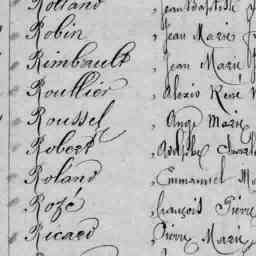 Rolland , Jean Baptiste
Robin , Jean Marie
Rimbault , Jean Marie
Roullier , Alexis René
Roussel , Ange Marie
Robert , Adolphe
Roland , Emmanuel
Rozé , François Pierre
Ricard , Pierre Marie